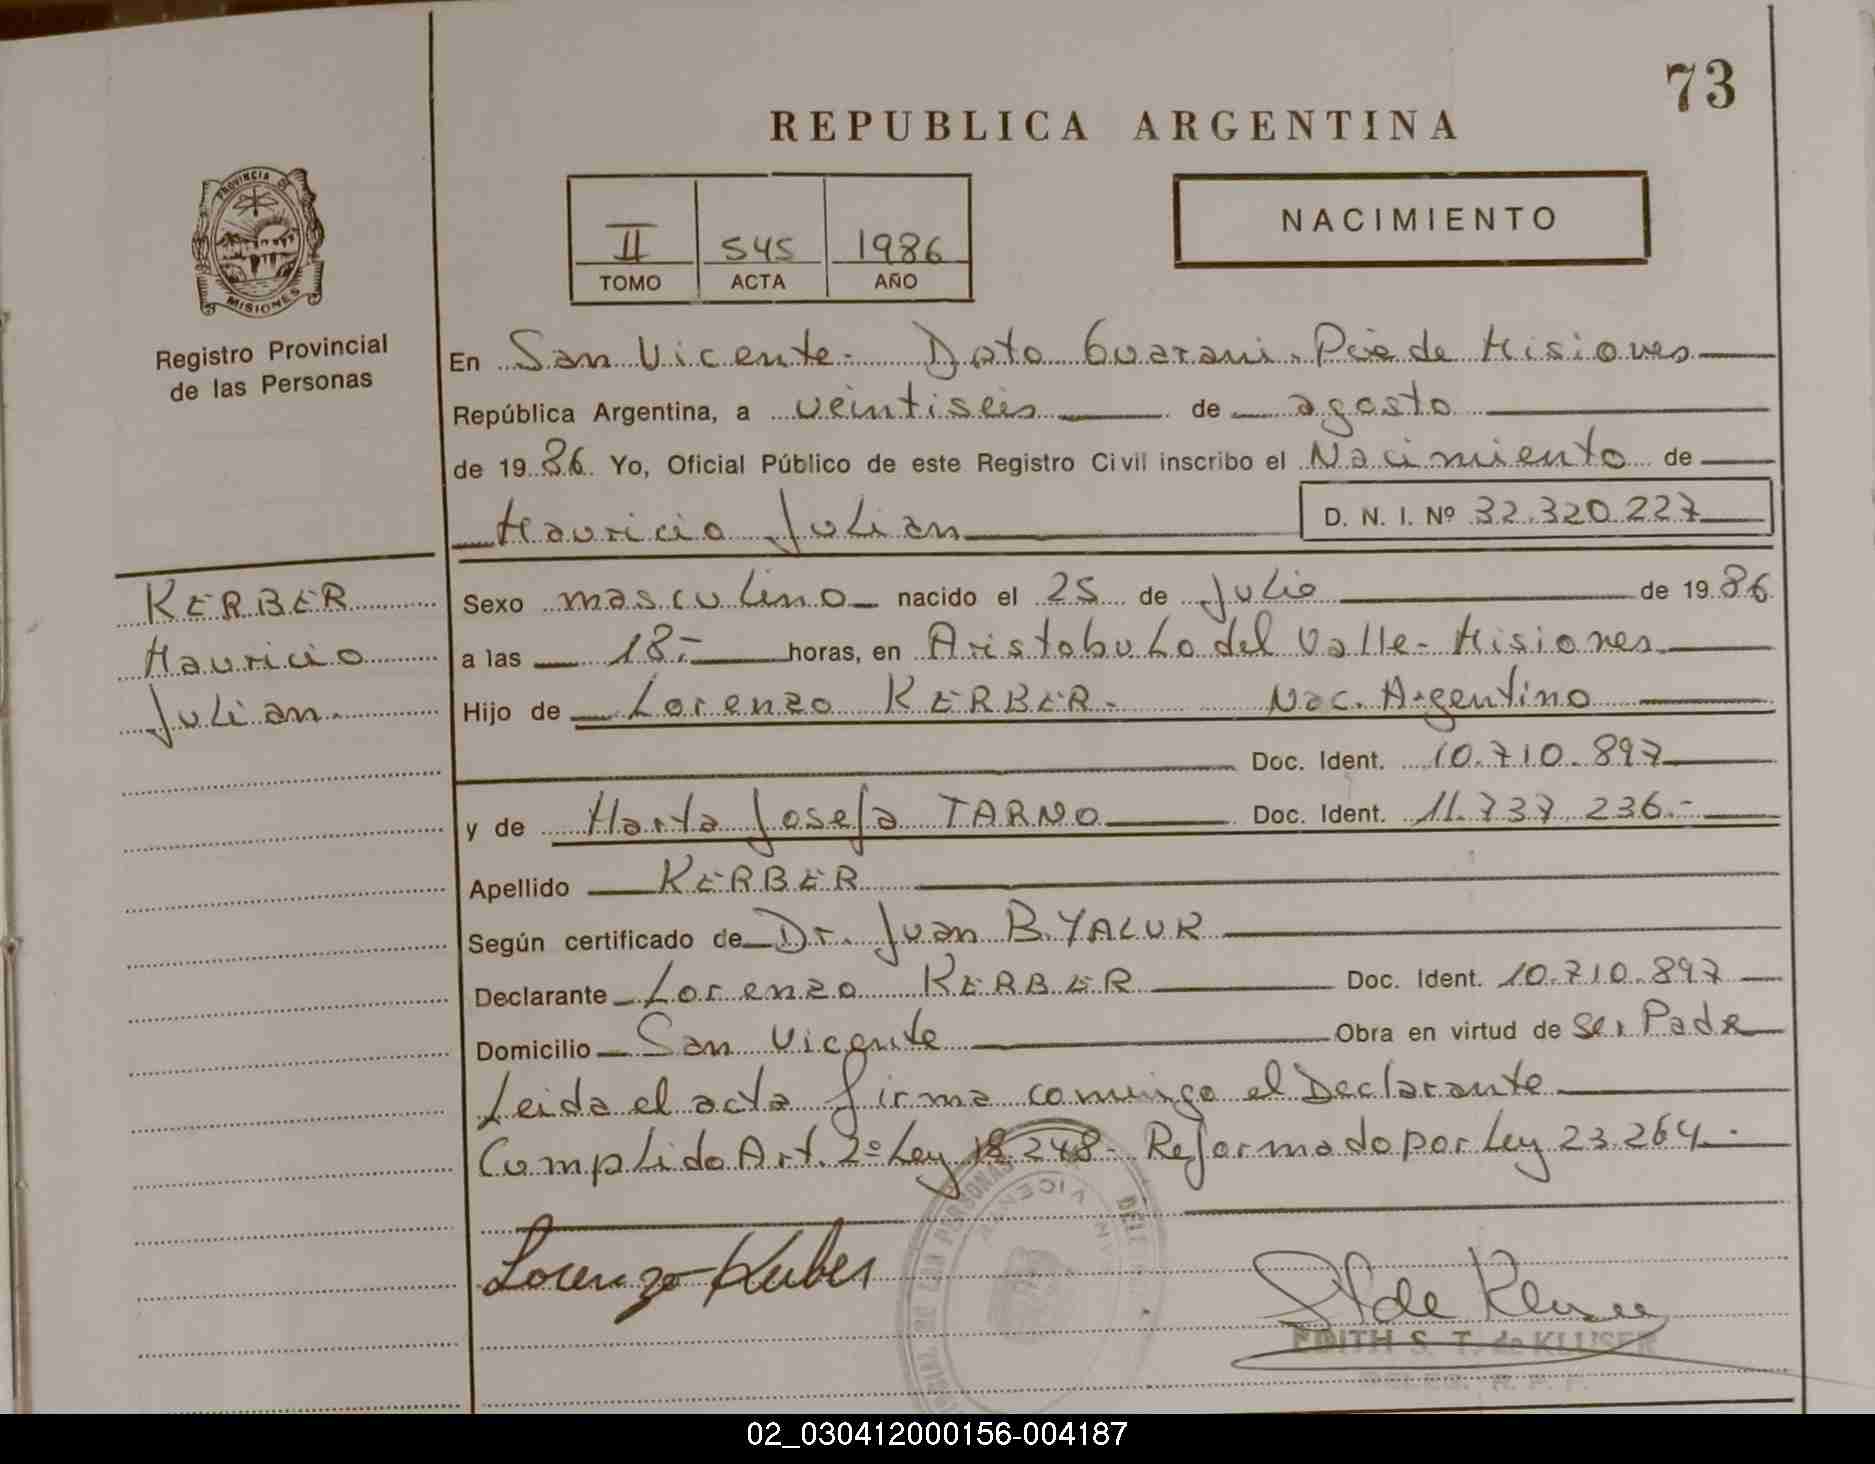 73
REPUBLICA ARGENTINA
PROVINCIA DE
MISIONES
Registro Provincial
de las Personas
II 545 1986
TOMO ACTA AÑO
NACIMIENTO
En San Vicente - Dpto Guarani - Pcia de Misiones
República Argentina, a veintiseis de agosto
de 1986 Yo, Oficial Público de este Registro Civil inscribo el Nacimiento de
Mauricio Julian D. N. I. Nº 32.320.227
KERBER
Mauricio
Julian
Sexo masculino nacido el 25 de Julio de 1986
a las 18.- horas, en Aristobulo del Valle - Misiones
Hijo de Lorenzo KERBER - Nac. Argentino
Doc. Ident. 10.710.897
y de Marta Josefa TARNO Doc. Ident. 11.737.236.-
Apellido KERBER
Según certificado de Dr. Juan B. YALUK
Declarante Lorenzo KERBER Doc. Ident. 10.710.897
Domicilio San Vicente Obra en virtud de ser Padre
Leida el acta firma conmigo el Declarante
Cumplido Art. 2º Ley 18.248 - Reformado por Ley 23.264.-
Lorenzo Kerber
DE LAS PERSONAS
VICENTE
EDITH S. T. de KLUSER
DELEG. R. P. P.
02_030412000156-004187